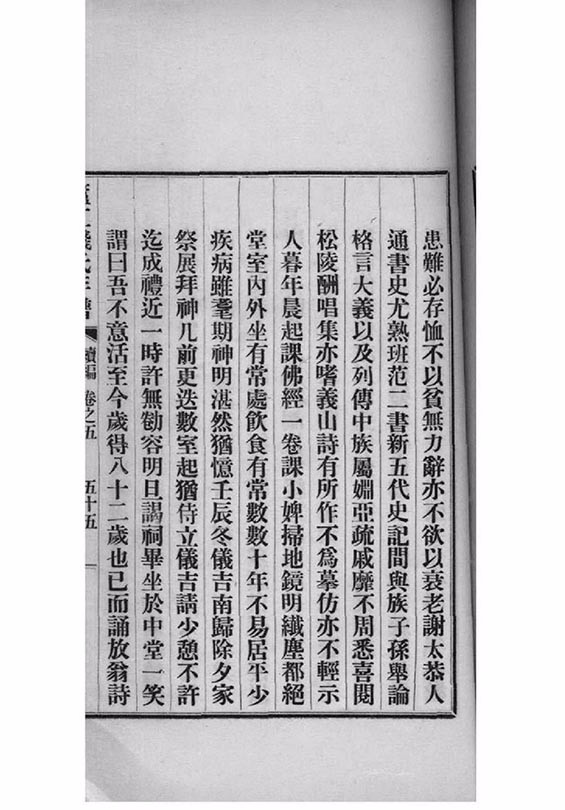 患難必存恤不以貧無力辭亦不欲以衰老謝太恭人
通書史尤熟班范二書新五代史記間與族子孫舉論
格言大義以及列傳中族屬婣亞疏戚靡不周悉喜閱
松陵酬唱集亦嗜義山詩有所作不爲摹仿亦不輕示
人暮年晨起課佛經一卷課小婢掃地鏡明纖塵都絕
堂室內外坐有常處飲食有常數數十年不易居平少
疾病雖耄期神明湛然猶憶壬辰冬儀吉南歸除夕家
祭展拜神几前更迭數室起猶侍立儀吉請少憩不許
迄成禮近一時許無勌容明旦謁祠畢坐於中堂一笑
謂曰吾不意活至今歲得八十二歲也已而誦放翁詩
續編 卷之五 五十五